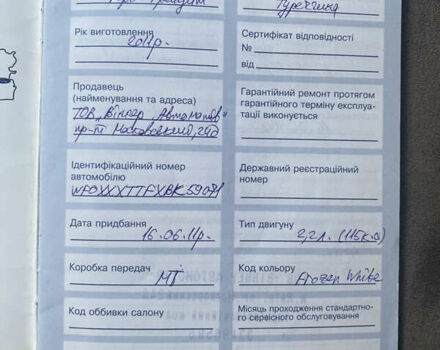 Туреччина
Рік виготовлення
2011р.
Сертифікат відповідності
№
від
Продавець
(найменування та адреса)
ТОВ „Віннер Автомотів"
пр-т Московський, 24д
Гарантійний ремонт протягом
гарантійного терміну експлуа-
тації виконується
Ідентифікаційний номер
автомобілю
WF0XXXTTFXBK59081
Державний реєстраційний
номер
Дата придбання
16.06.11р.
Тип двигуну
2,2л. (115к.с)
Коробка передач
МТ
Код кольору
Frozen White
Код оббивки салону
Місяць проходження стандартно-
го сервісного обслуговування